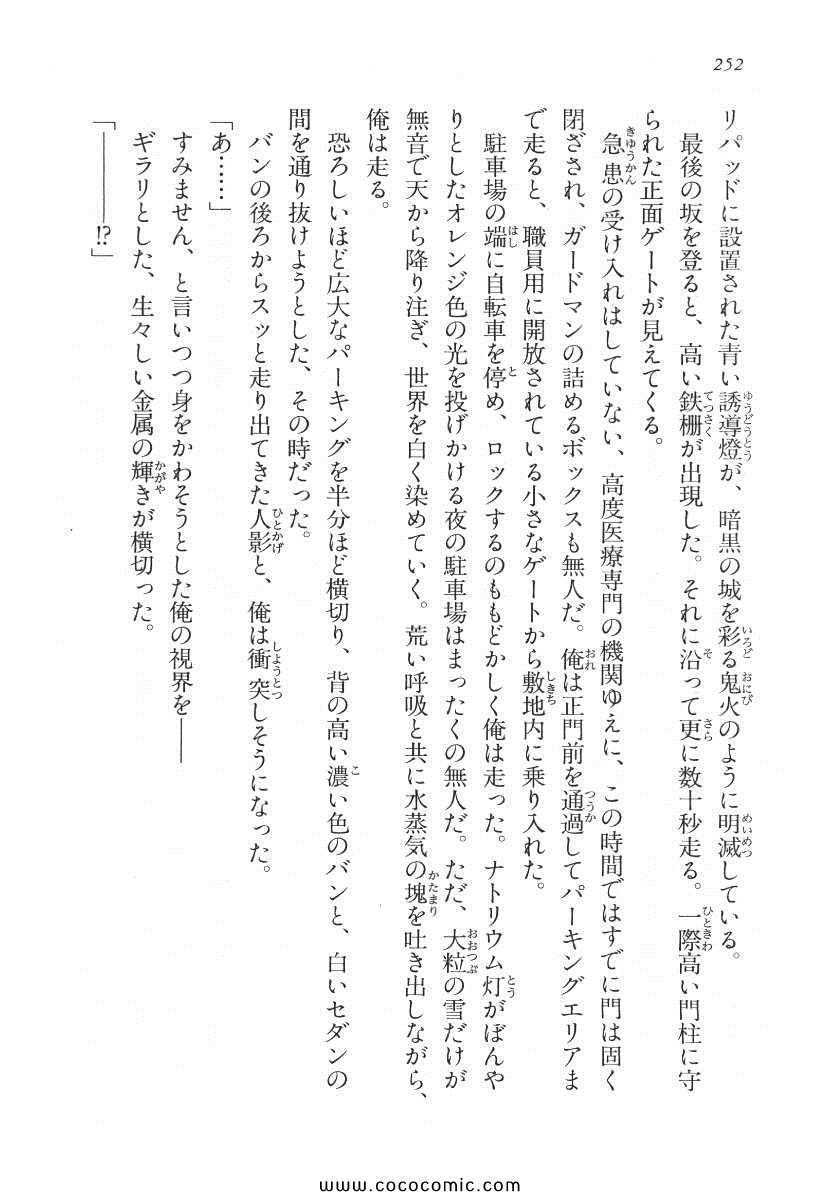 252
リパッドに設置された青い誘導燈が、暗黒の城を彩る鬼火のように明滅している。
最後の坂を登ると、高い鉄柵が出現した。それに沿って更に数十秒走る。一際高い門柱に守
られた正面ゲートが見えてくる。
急患の受け入れはしていない、高度医療専門の機関ゆえに、この時間ではすでに門は固く
閉ざされ、ガードマンの詰めるボックスも無人だ。俺は正門前を通過してパーキングエリアま
で走ると、職員用に開放されている小さなゲートから敷地内に乗り入れた。
駐車場の端に自転車を停め、ロックするのももどかしく俺は走った。ナトリウム灯がぼんや
りとしたオレンジ色の光を投げかける夜の駐車場はまったくの無人だ。ただ、大粒の雪だけが
無音で天から降り注ぎ、世界を白く染めていく。荒い呼吸と共に水蒸気の塊を吐き出しながら、
俺は走る。
恐ろしいほど広大なパーキングを半分ほど横切り、背の高い濃い色のバンと、白いセダンの
間を通り抜けようとした、その時だった。
バンの後ろからスッと走り出てきた人影と、俺は衝突しそうになった。
「あ……」
すみません、と言いつつ身をかわそうとした俺の視界を――
ギラリとした、生々しい金属の輝きが横切った。
「――――!?」
www.cococomic.com